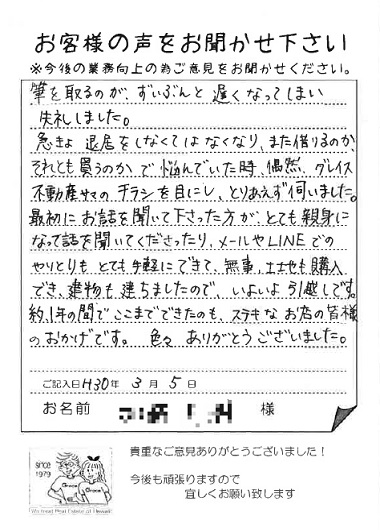 お客様の声をお聞かせ下さい
※今後の業務向上の為ご意見をお聞かせください。
筆を取るのが、ずいぶんと遅くなってしまい
失礼しました。
急きょ退居をしなくてはなくなり、また借りるのか、
それとも買うのかで悩んでいた時、偶然、グレイス
不動産サマのチラシを目にし、とりあえず伺いました。
最初にお話を聞いて下さった方が、とても親身に
なって話を聞いてくださったり、メールやLINEでの
やりとりもとても手軽にできて、無事、土地も購入
でき、建物も建ちましたので、いよいよ引越しです。
約1年の間でここまでできたのも、ステキなお店の皆様
のおかげです。色々ありがとうございました。
ご記入日 H30年 3月 5日
お名前 様
SINCE 1979
貴重なご意見ありがとうございました！
今後も頑張りますので
宜しくお願い致します